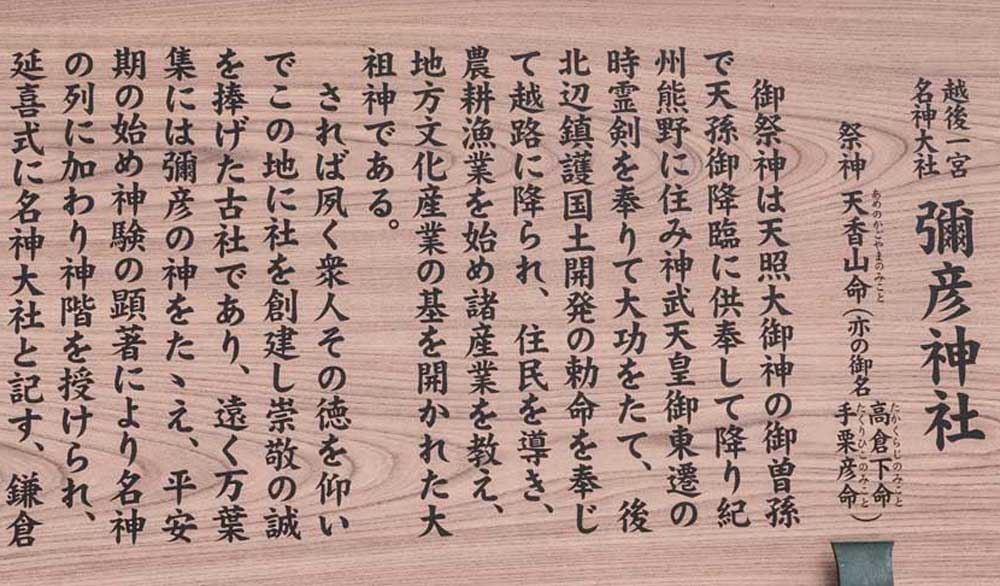 越後一宮
名神大社
彌彦神社
祭神 天香山命(亦の御名 高倉下命 手栗彦命)
あめのかごやまのみこと
たかくらじのみこと
たくりひこのみこと
御祭神は天照大御神の御曽孫
で天孫御降臨に供奉して降り紀
州熊野に住み神武天皇御東遷の
時霊剣を奉りて大功をたて、後
北辺鎮護国土開発の勅命を奉じ
て越路に降られ、住民を導き、
農耕漁業を始め諸産業を教え、
地方文化産業の基を開かれた大
祖神である。
されば夙く衆人その徳を仰い
でこの地に社を創建し崇敬の誠
を捧げた古社であり、遠く万葉
集には彌彦の神をたゝえ、平安
期の始め神験の顕著により名神
の列に加わり神階を授けられ、
延喜式に名神大社と記す、鎌倉